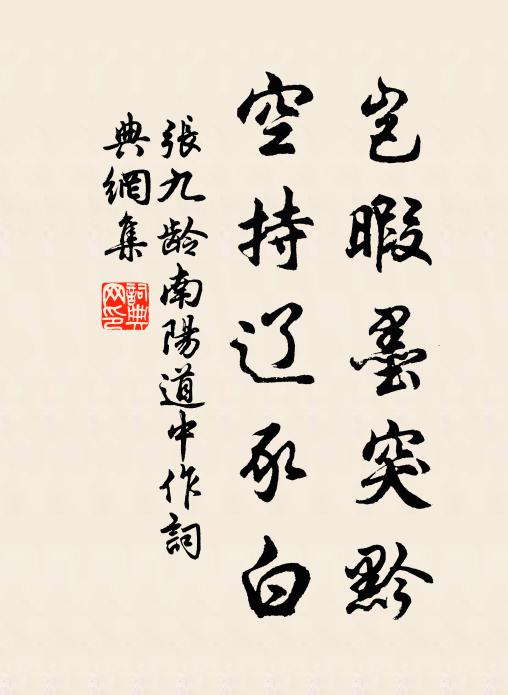 岂暇墨突黔
空持辽豕白
張九龄南陽道中作詞
典網集
詞典
网印